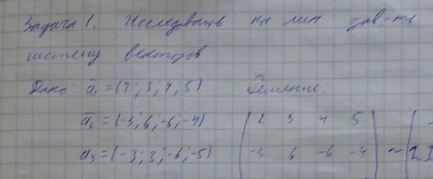 Задача 1. Исследовать на лин. зав-ть
систему векторов
Дано: a₁ =(2; 3; 4; 5) Решение:
a₂ =(-3; 6; -6; -4) 2 3 4 5
a₃ =(-3; 3; -6; -5) -3 6 -6 -4 ~